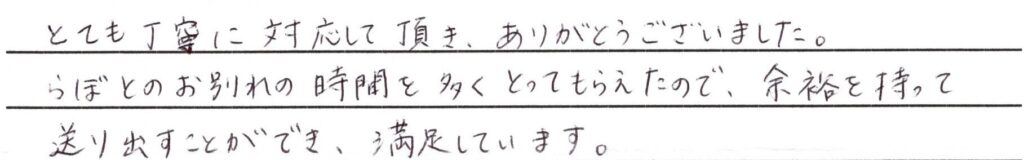 とても丁寧に対応して頂き、ありがとうございました。
らぼとのお別れの時間を多くとってもらえたので、余裕を持って
送り出すことができ、満足しています。